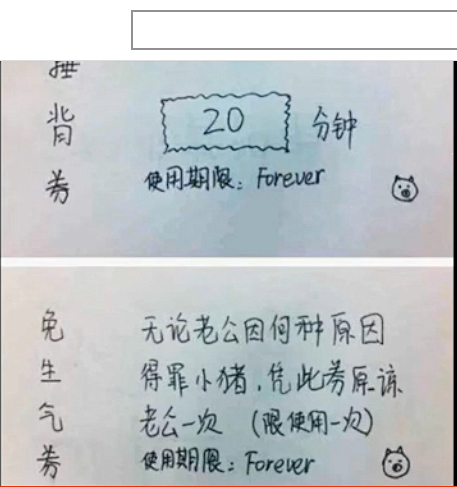 捶背券
20 分钟
使用期限：Forever
免生气券
无论老公因何种原因
得罪小猪，凭此券原谅
老公一次 （限使用一次）
使用期限：Forever